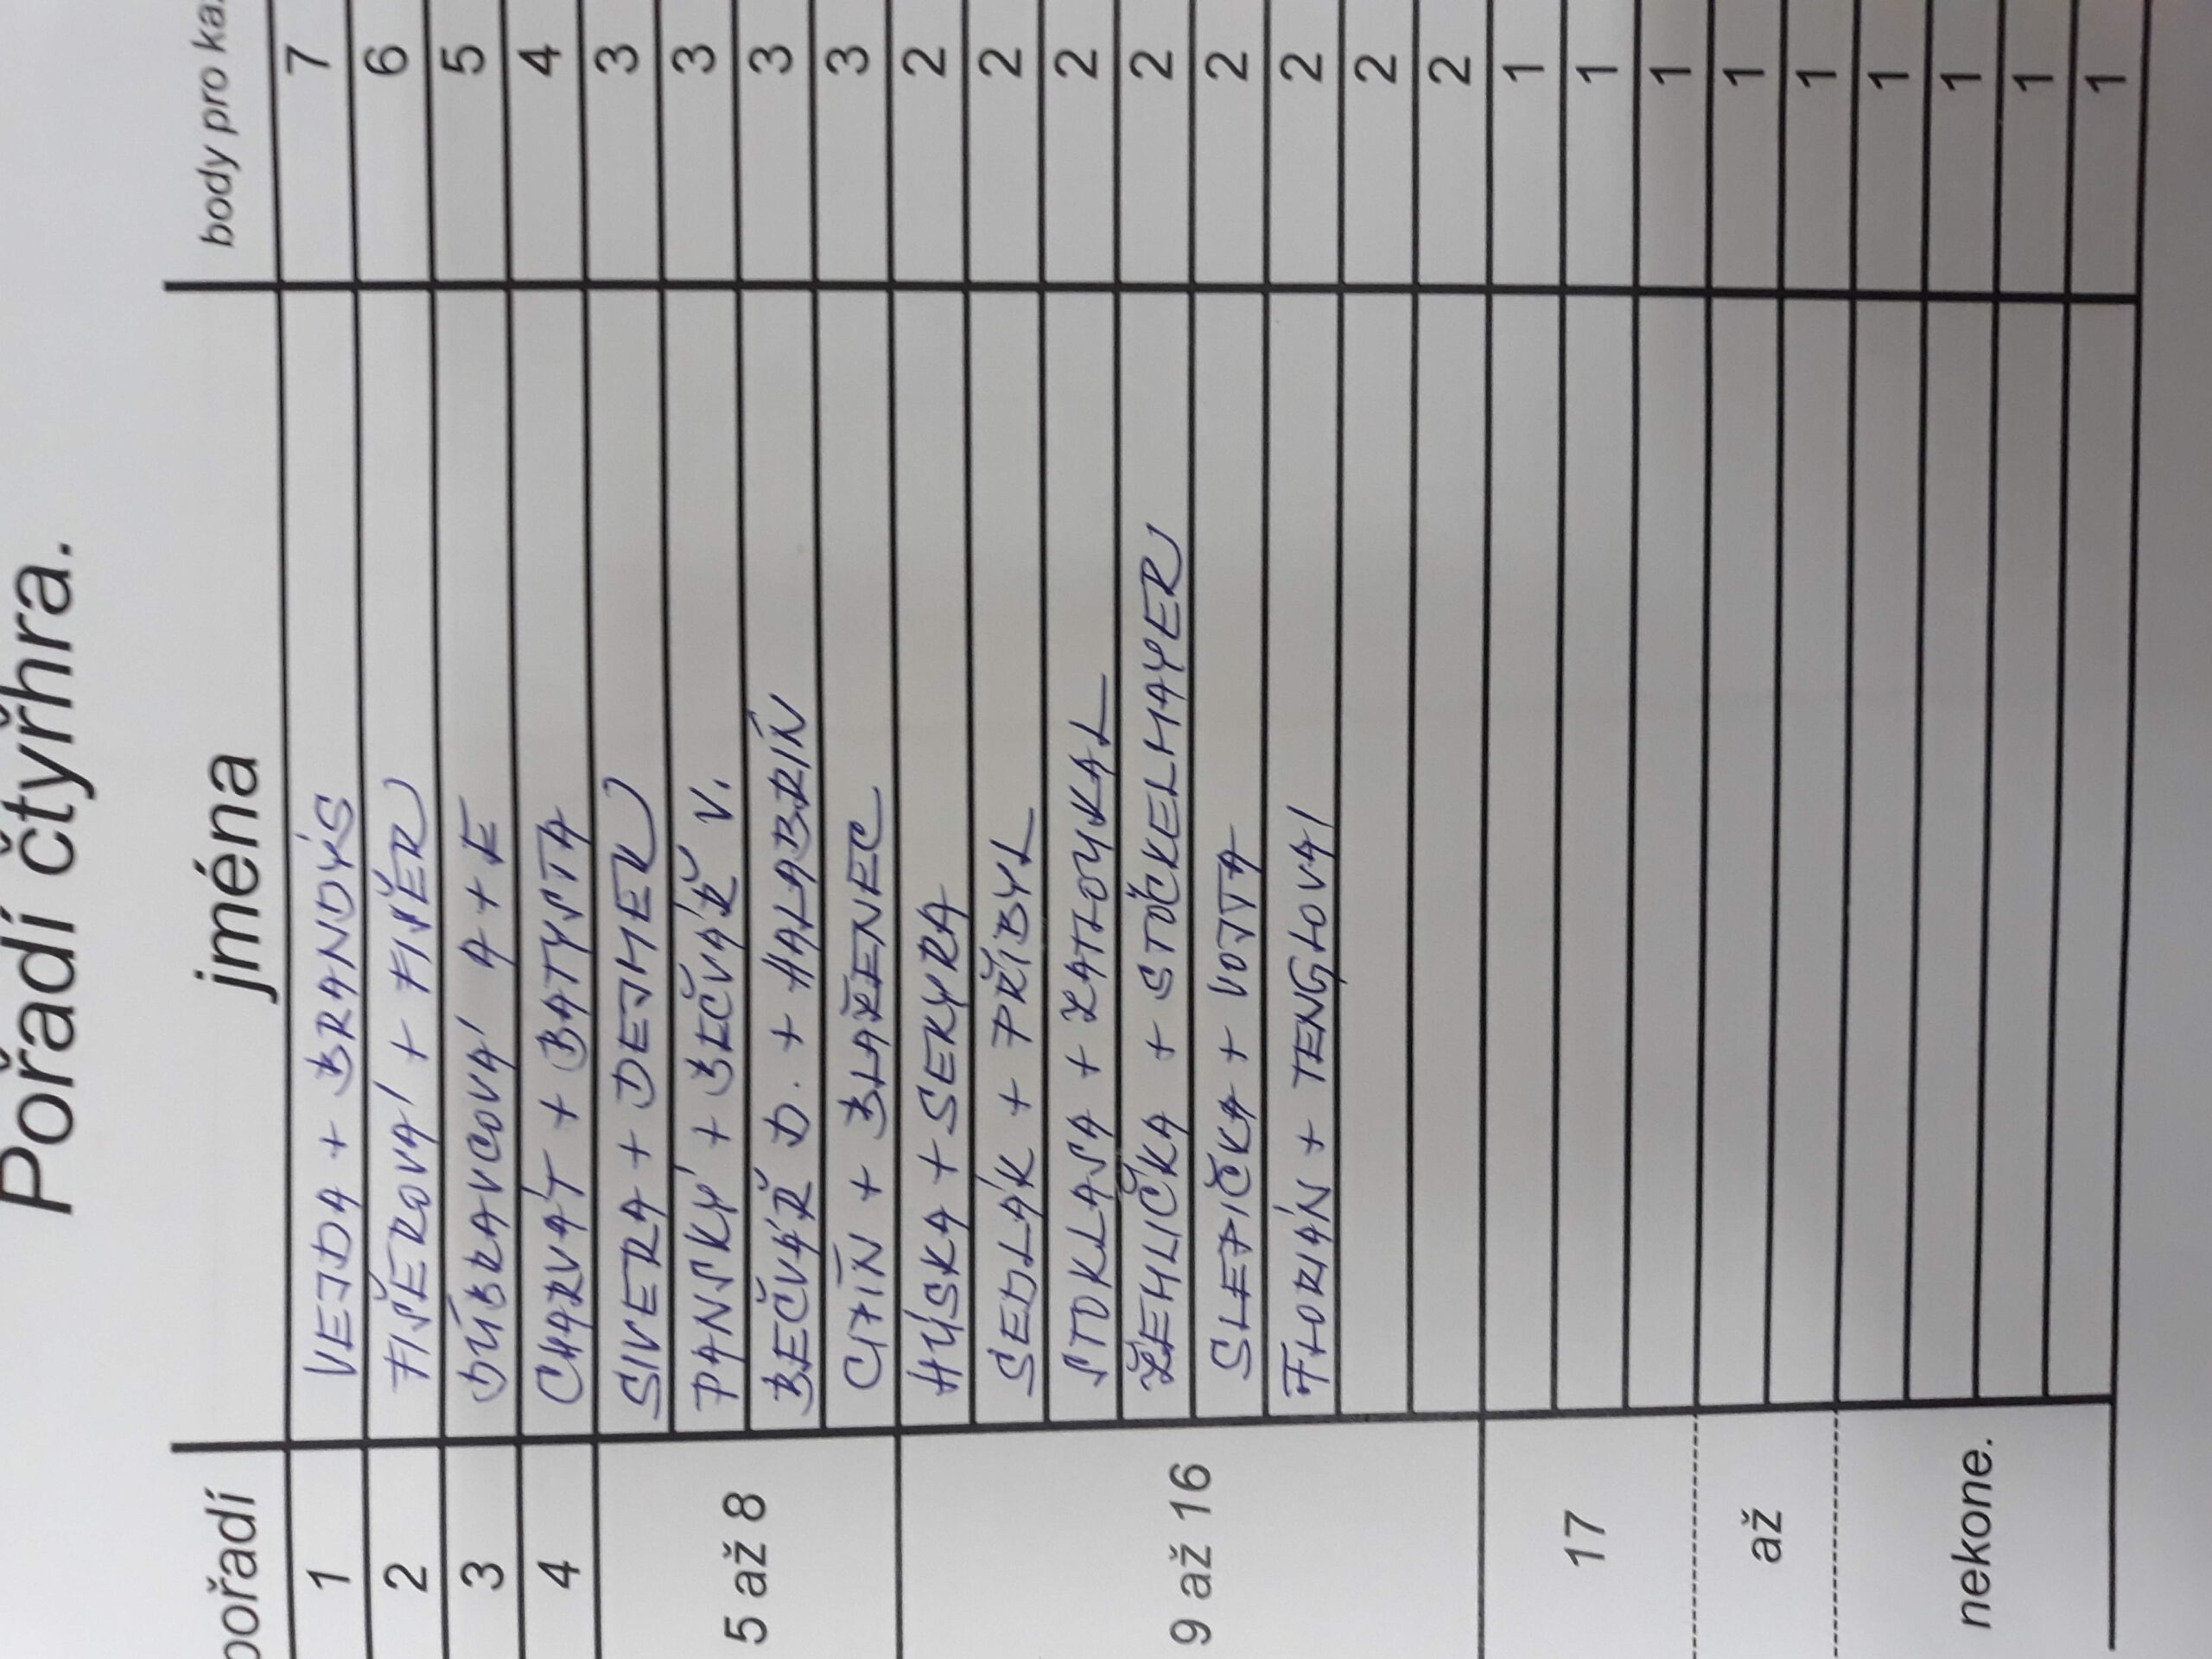 Pořadí čtyřhra.
pořadí jména body pro ka
1 VEJDA + BRANDÝS 7
2 FIŠEROVÁ + FIŠER 6
3 DÚBRAVCOVÁ A + E 5
4 CHARVÁT + BATYSTA 4
5 až 8 SIVERA + DEJMEK 3
PANSKÝ + BEČVÁŘ V. 3
BEČVÁŘ D. + HALABRÍN 3
CIPÍN + BLAŽENEC 3
9 až 16 HÝSKA + SEKYRA 2
SEDLÁK + PŘIBYL 2
STOKLASA + ZATLOUKAL 2
ŽEHLIČKA + STÖCKELMAYER 2
SLEPIČKA + VOJTA 2
FLORIÁN + TENGLOVÁ 2
2
2
17 1
1
1
až 1
1
nekone. 1
1
1
1